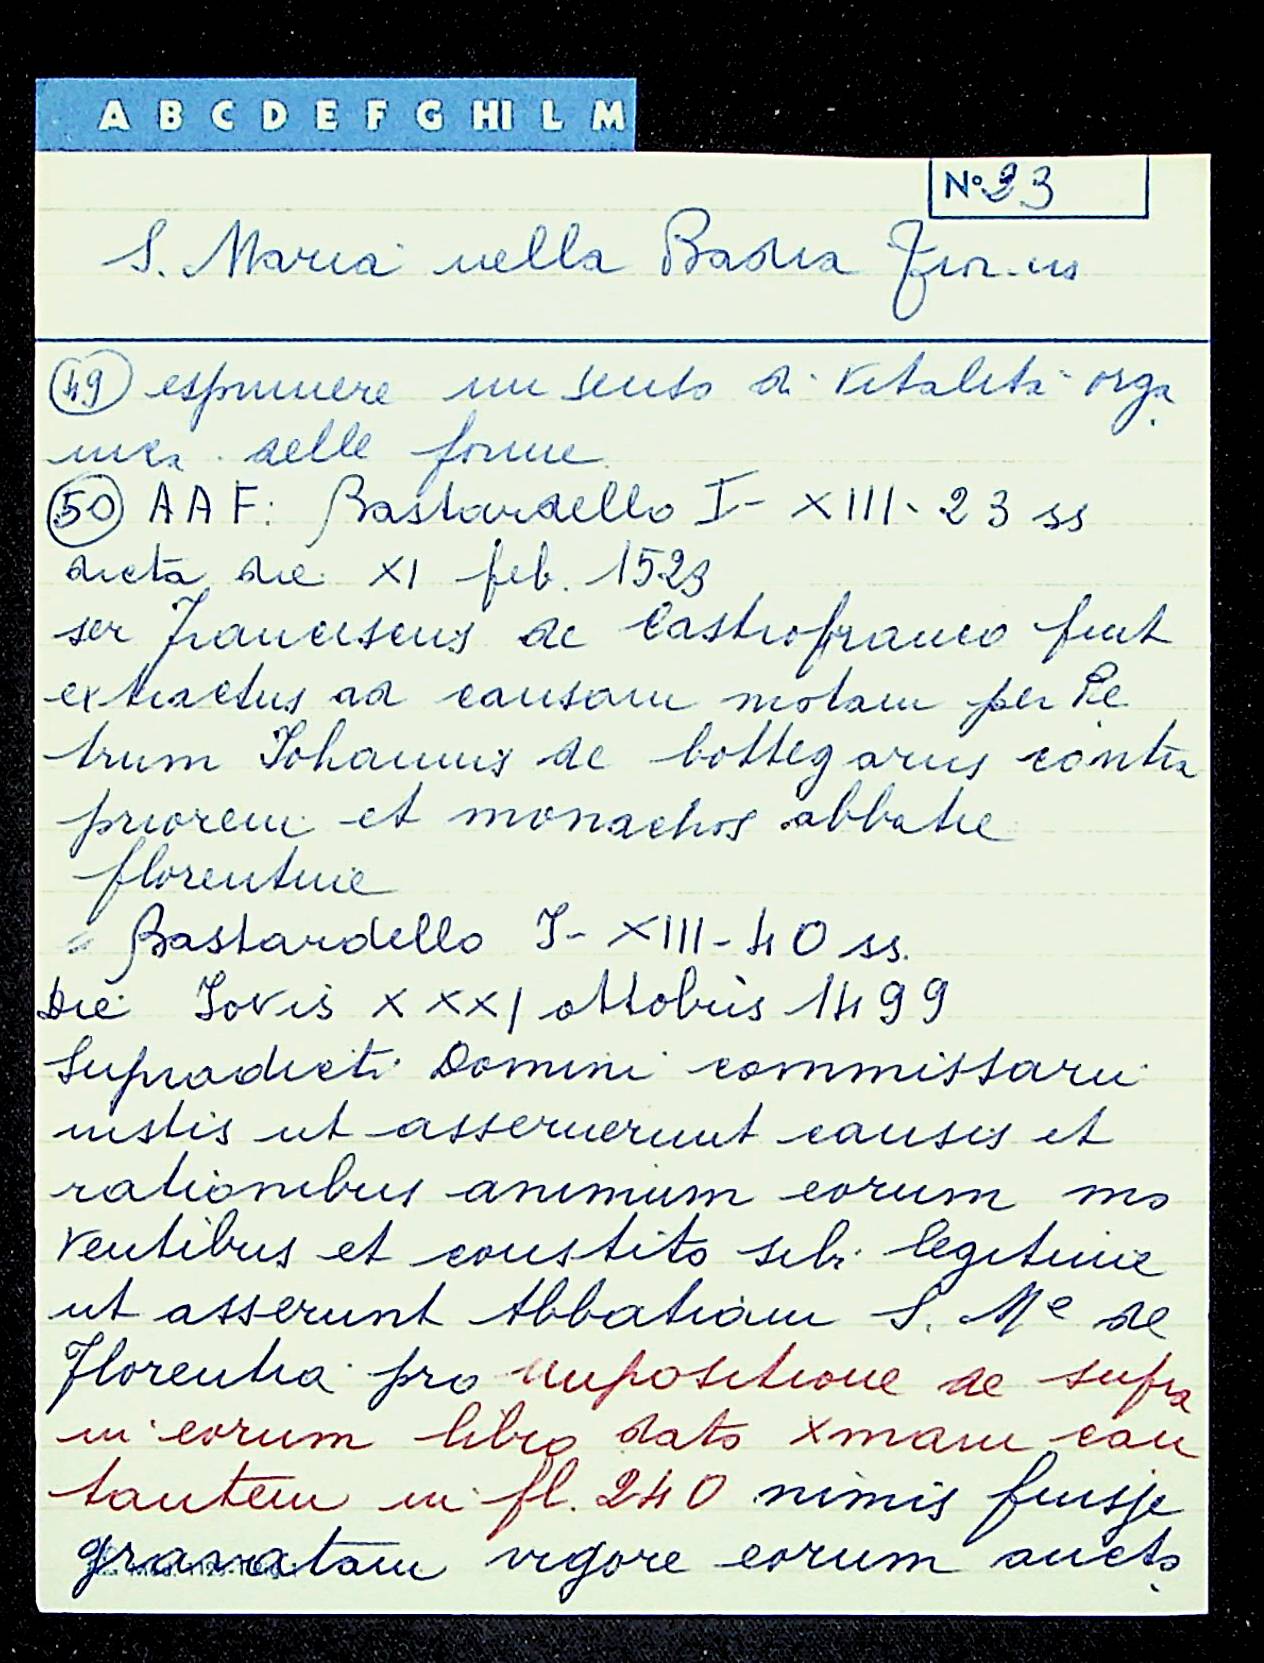 A B C D E F G HI L M
N° 23
S. Maria nella Badia
49 esprimere un senso di vitalità orga
nica delle forme
50 AAF: Bastardello I- XIII- 23 ss
dicta die XI feb. 1523
ser Franciscus de Castrofranco fuit
extractus ad causam motam per Pe
trum Iohannis de bottegariis contra
priorem et monachos abbatie
florentine
Bastardello I- XIII- 40 ss.
Die Iovis XXXI ottobris 1499
Supradicti Domini commissarii
iustis ut asseruerunt causis et
rationibus animum eorum mo
ventibus et constito sibi legitime
ut asserunt Abbatiam S. Me de
Florentia pro impositione de supra
in eorum libro dato Xmam can
tantem in fl. 240 nimis fuisse
gravatam vigore eorum aucto